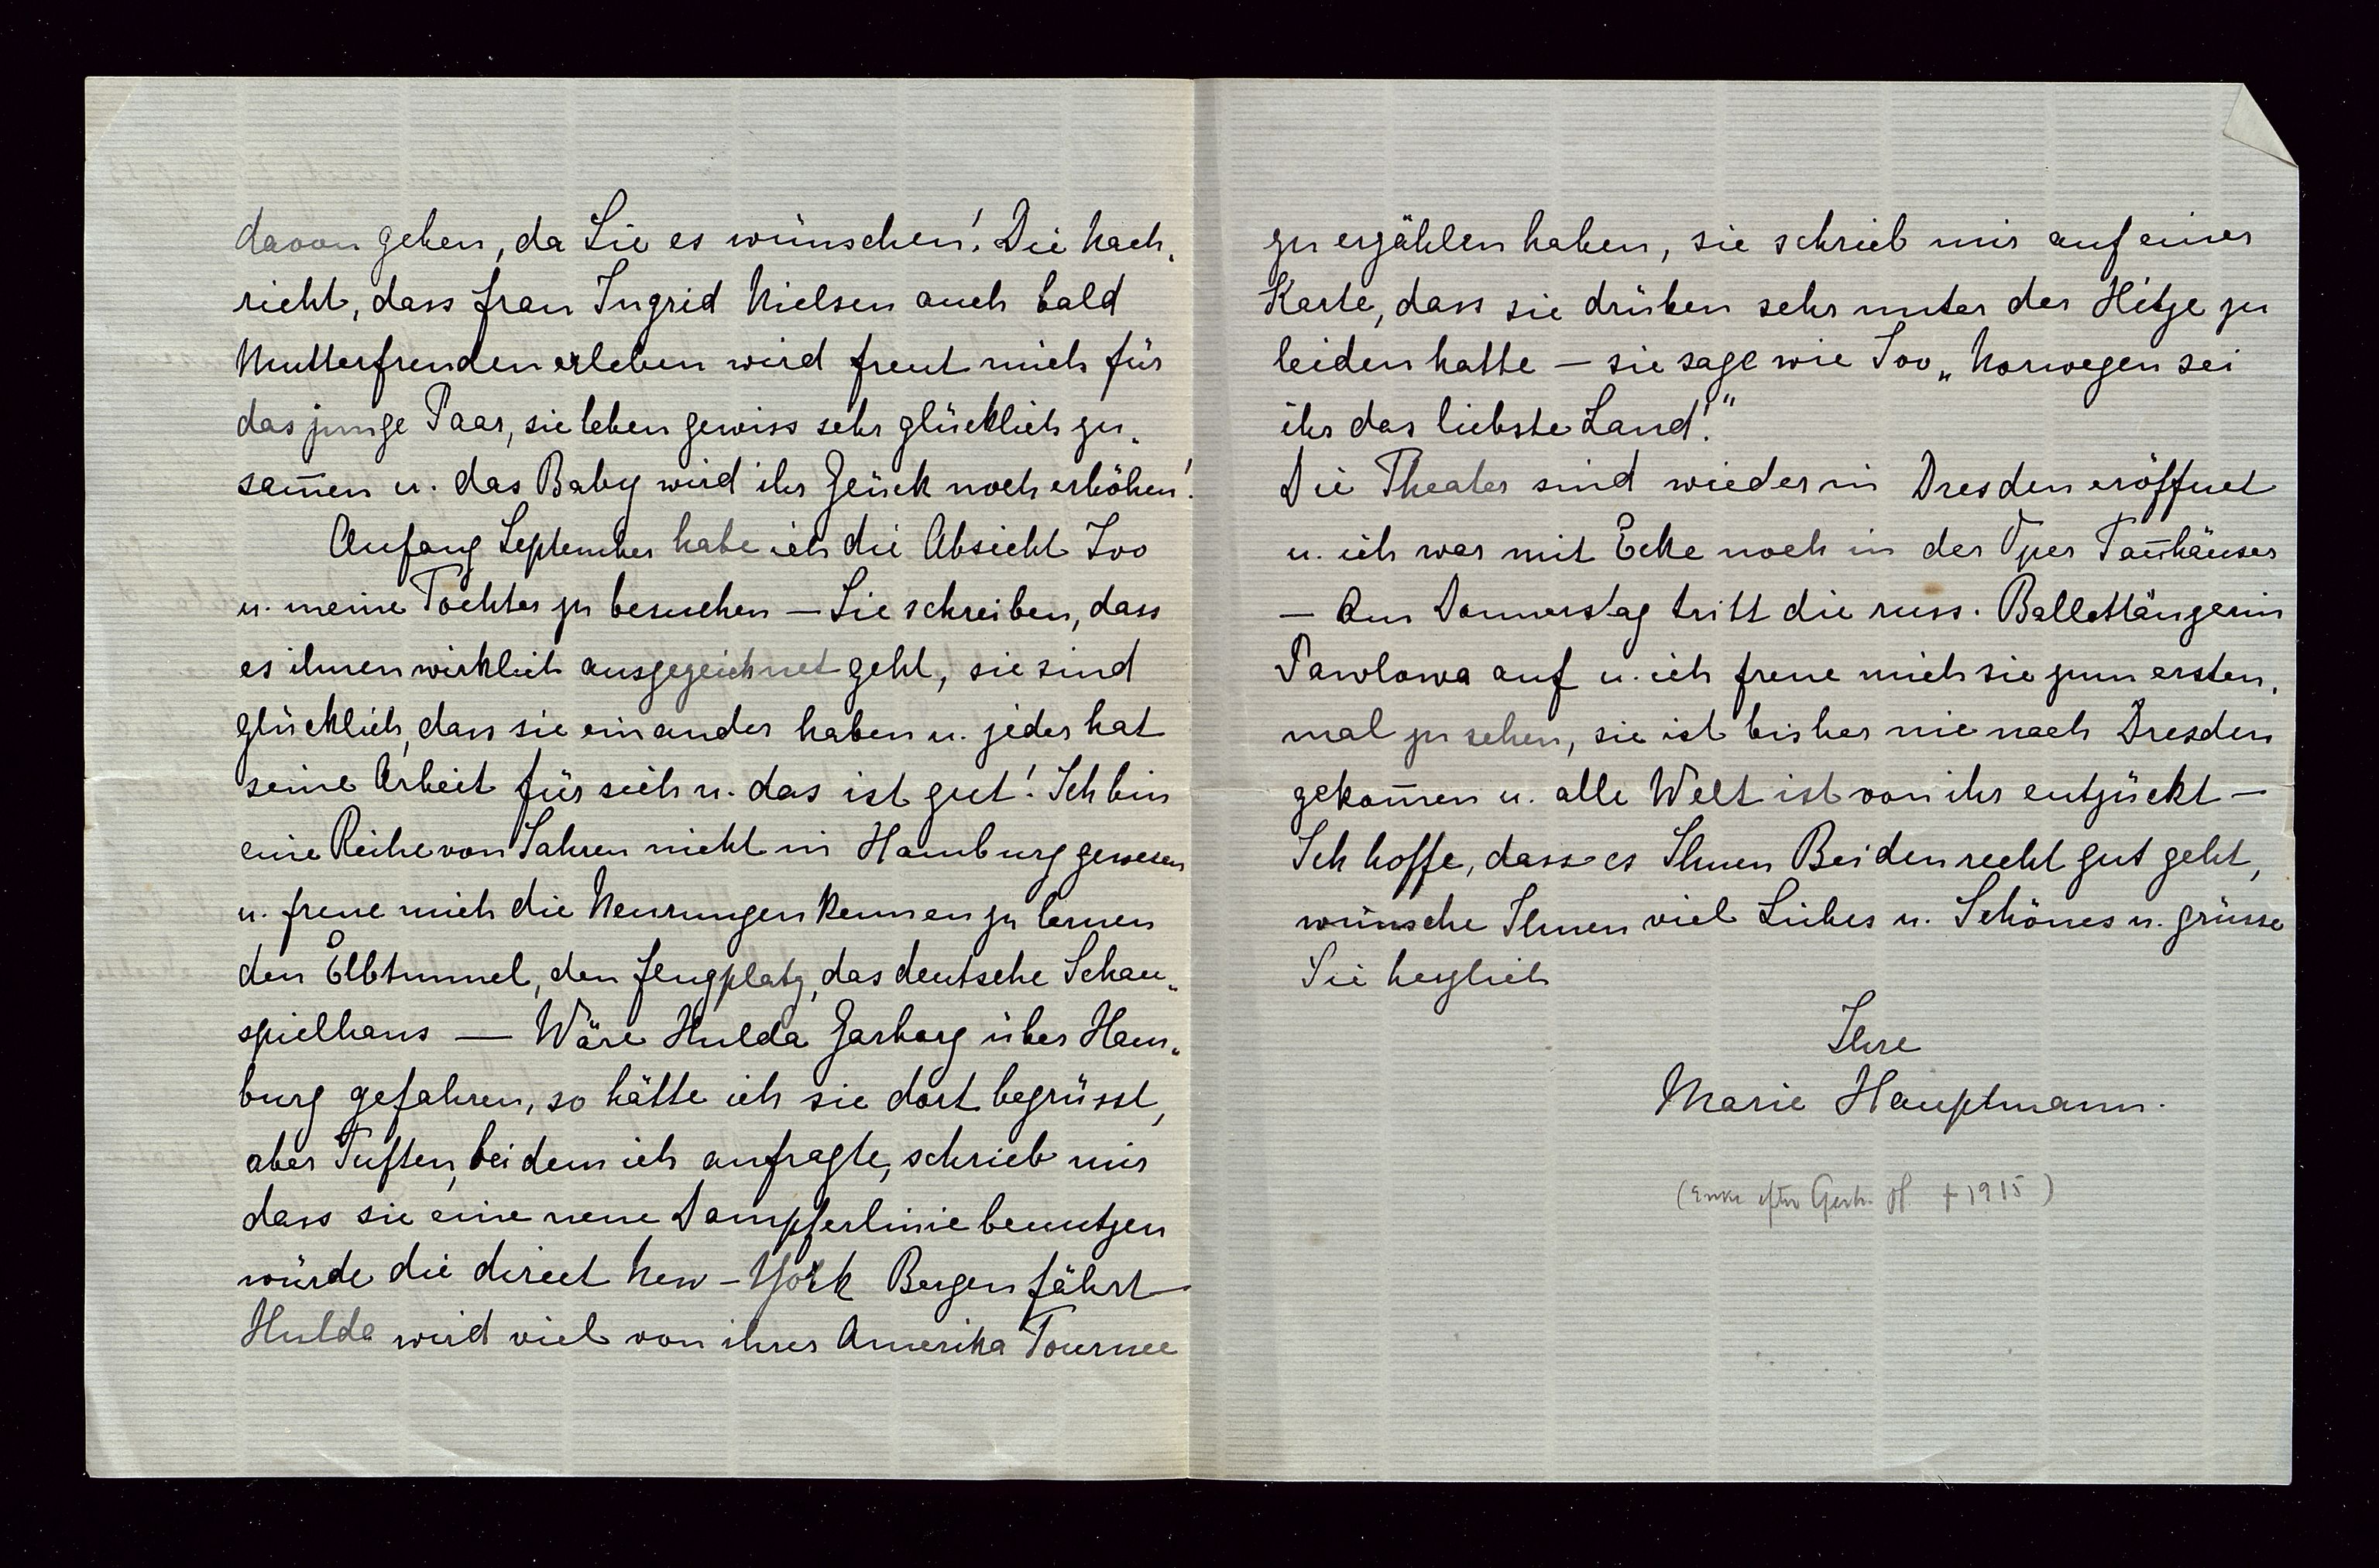 davon geben, da Sie es wünschen! Die Nach„
richt, dass Frau Ingrid Nielsen auch bald
Mutterfreuden erleben wird freut mich für
das junge Paar, sie leben gewiss sehr glücklich zu„
sam̅en u. das Baby wird ihr Glück noch erhöhen!
Anfang September habe ich die Absicht Ivo
u. meine Tochter zu besuchen — Sie schreiben, dass
es ihnen wirklich ausgezeichnet geht, sie sind
glücklich, dass sie einander haben u. jeder hat
seine Arbeit für sich u. das ist gut! Ich bin
eine Reihe von Jahren nicht in Hamburg gewesen
u. freue mich die Neurungen kennen zu lernen
den Elbtunnel, den Flugplatz, das deutsche Schau„
spielhaus — Wäre Hulda Garborg über Ham„
burg gefahren, so hätte ich sie dort begrüsst,
aber Tuften, bei dem ich anfragte, schrieb mir
dass sie eine neue Dampferlinie benutzen
würde die direct New-York Bergen fährt —
Hulda wird viel von ihrer Amerika Tournee
zu erzählen haben, sie schrieb mir auf einer
Karte, dass sie drüben sehr unter der Hitze zu
leiden hatte — sie sage wie Ivo „Norwegen sei
ihr das liebste Land!"
Die Theater sind wieder in Dresden eröffnet
u. ich war mit Ecke noch in der Oper Tan̅häuser
— Am Donnerstag tritt die russ. Ballettänzerin
Pawlowa auf u. ich freue mich sie zum ersten„
mal zu sehen, sie ist bisher nie nach Dresden
gekom̅en u. alle Welt ist von ihr entzückt —
Ich hoffe, dass es Ihnen Beiden recht gut geht,
wünsche Ihnen viel Liebes u. Schönes u. grüsse
Sie herzlich
Ihre
Marie Hauptmann.
(Enke efter Gerh. H. † 1915)